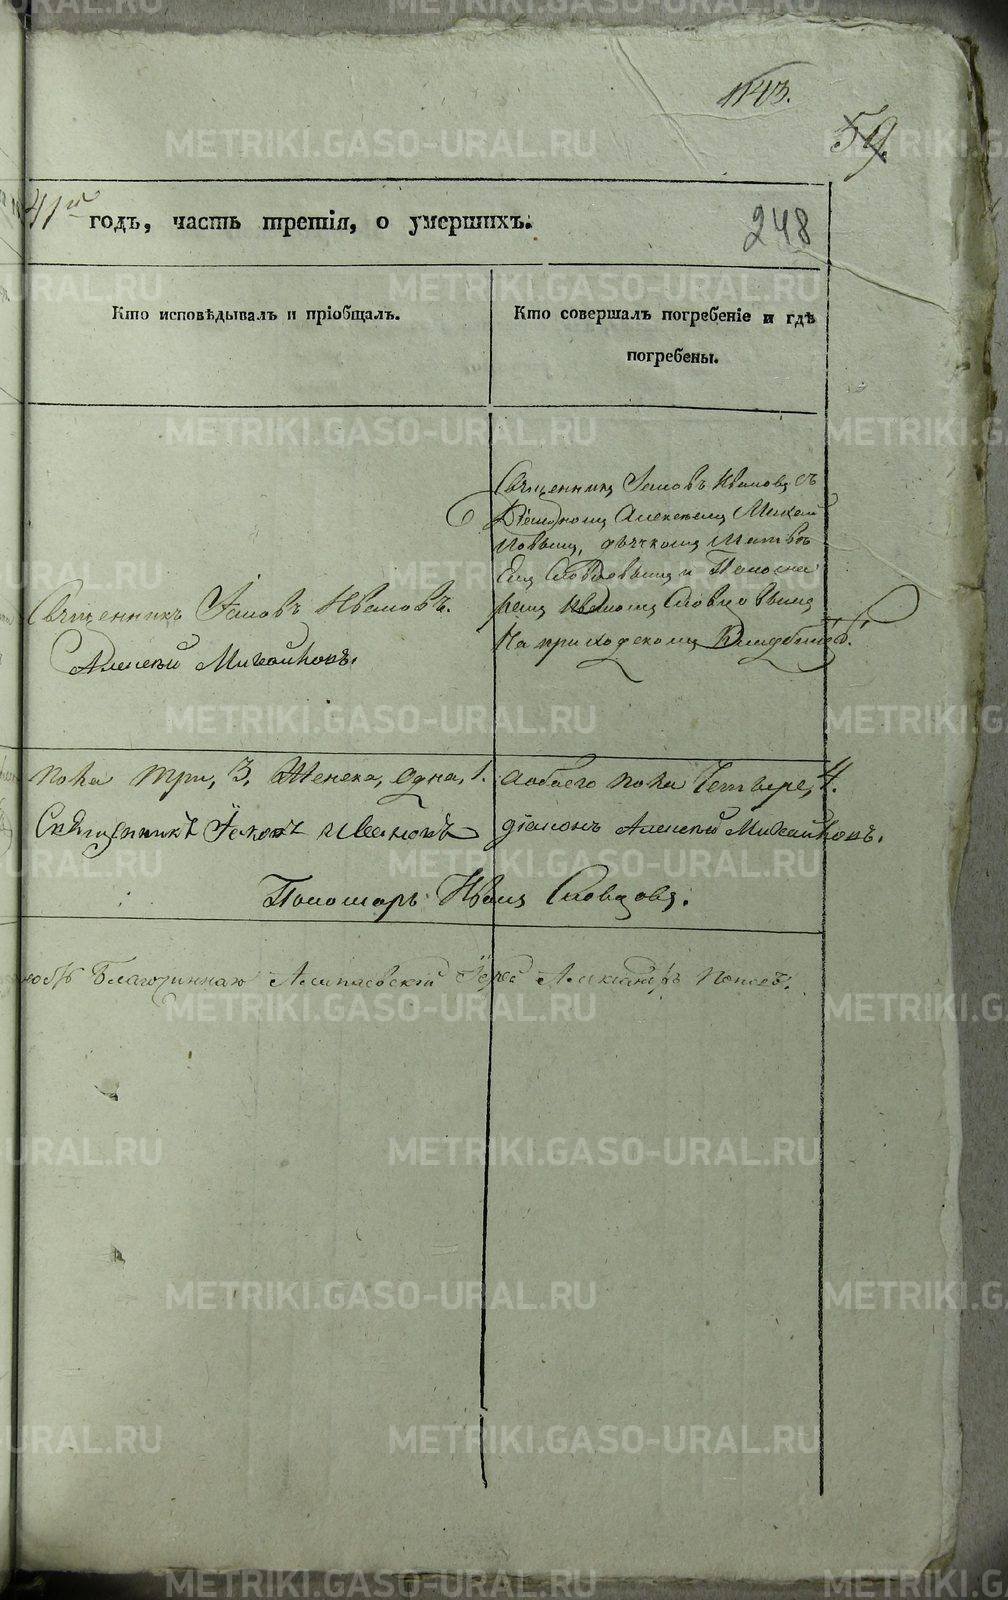 1143.
59.
41го годъ, часть третія, о умершихъ.
248
Кто исповѣдывалъ и пріобщалъ.
Кто совершалъ погребеніе и гдѣ
погребены.
Священникъ Іаковъ Ивановъ.
Алексѣй Михайловъ.
Священникъ Іаковъ Ивановъ съ
Діакономъ Алексѣемъ Михай
ловымъ, дьячкомъ Матвѣ
емъ Словцовымъ и Понома
ремъ Иваномъ Словцовымъ
на приходскомъ Кладбищѣ.
пола три, 3, Женска, одна, 1. а обоего пола Четыре, 4.
Священникъ Іаковъ Ивановъ діаконъ Алексѣй Михайловъ.
Пономарь Иванъ Словцовъ.
Благочинный Алапаевскій Іерей Александръ Поповъ.
METRIKI.GASO-URAL.RU